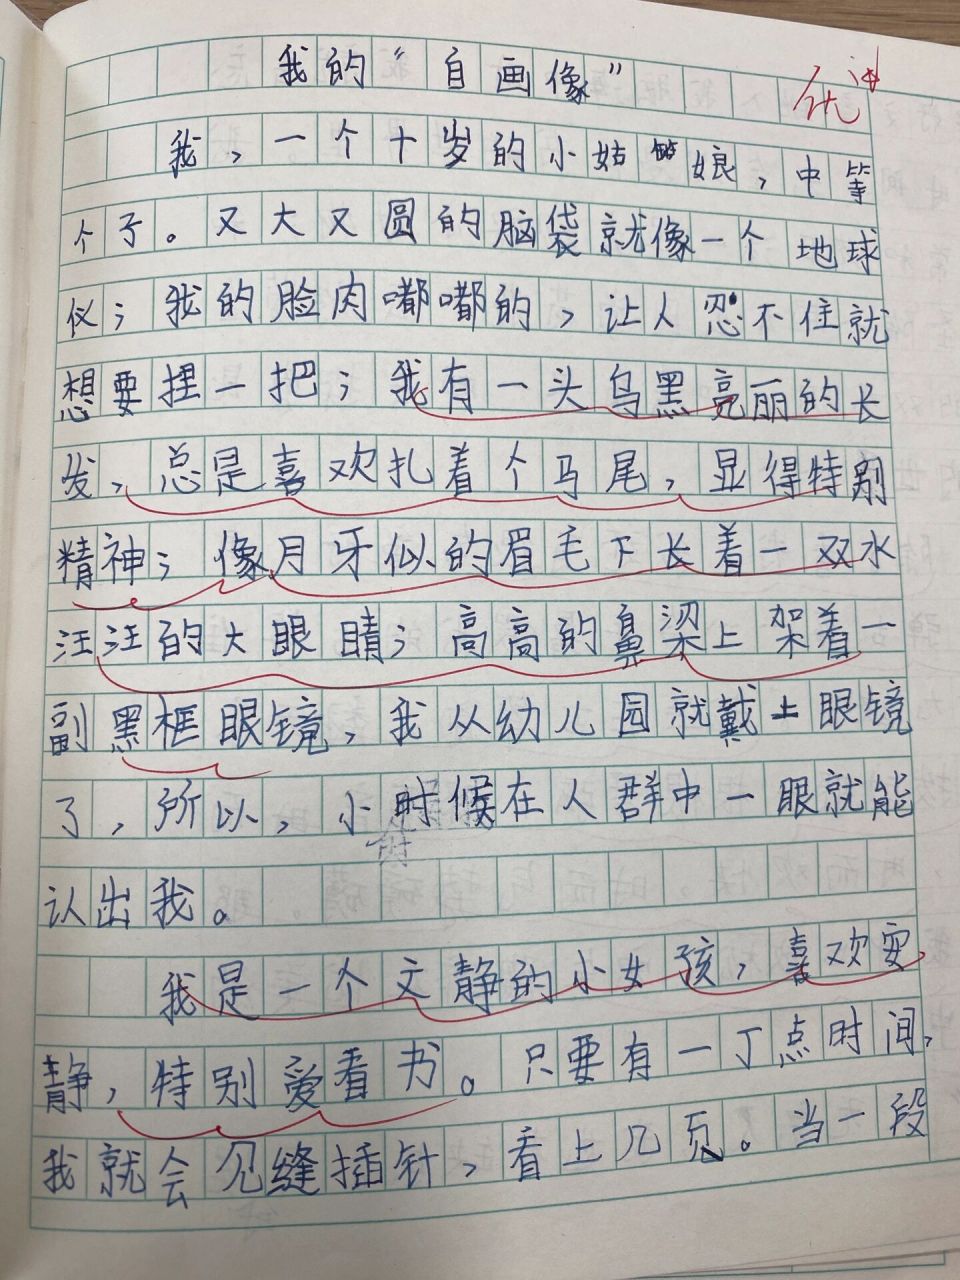 我的“自画像”
优
我，一个十岁的小姑娘，中等
个子。又大又圆的脑袋就像一个地球
仪；我的脸肉嘟嘟的，让人忍不住就
想要捏一把；我有一头乌黑亮丽的长
发，总是喜欢扎着个马尾，显得特别
精神；像月牙似的眉毛下长着一双水
汪汪的大眼睛；高高的鼻梁上架着一
副黑框眼镜，我从幼儿园就戴上眼镜
了，所以，小时候在人群中一眼就能
认出我。
我是一个文静的小女孩，喜欢安
静，特别爱看书。只要有一丁点时间，
我就会见缝插针，看上几页。当一段